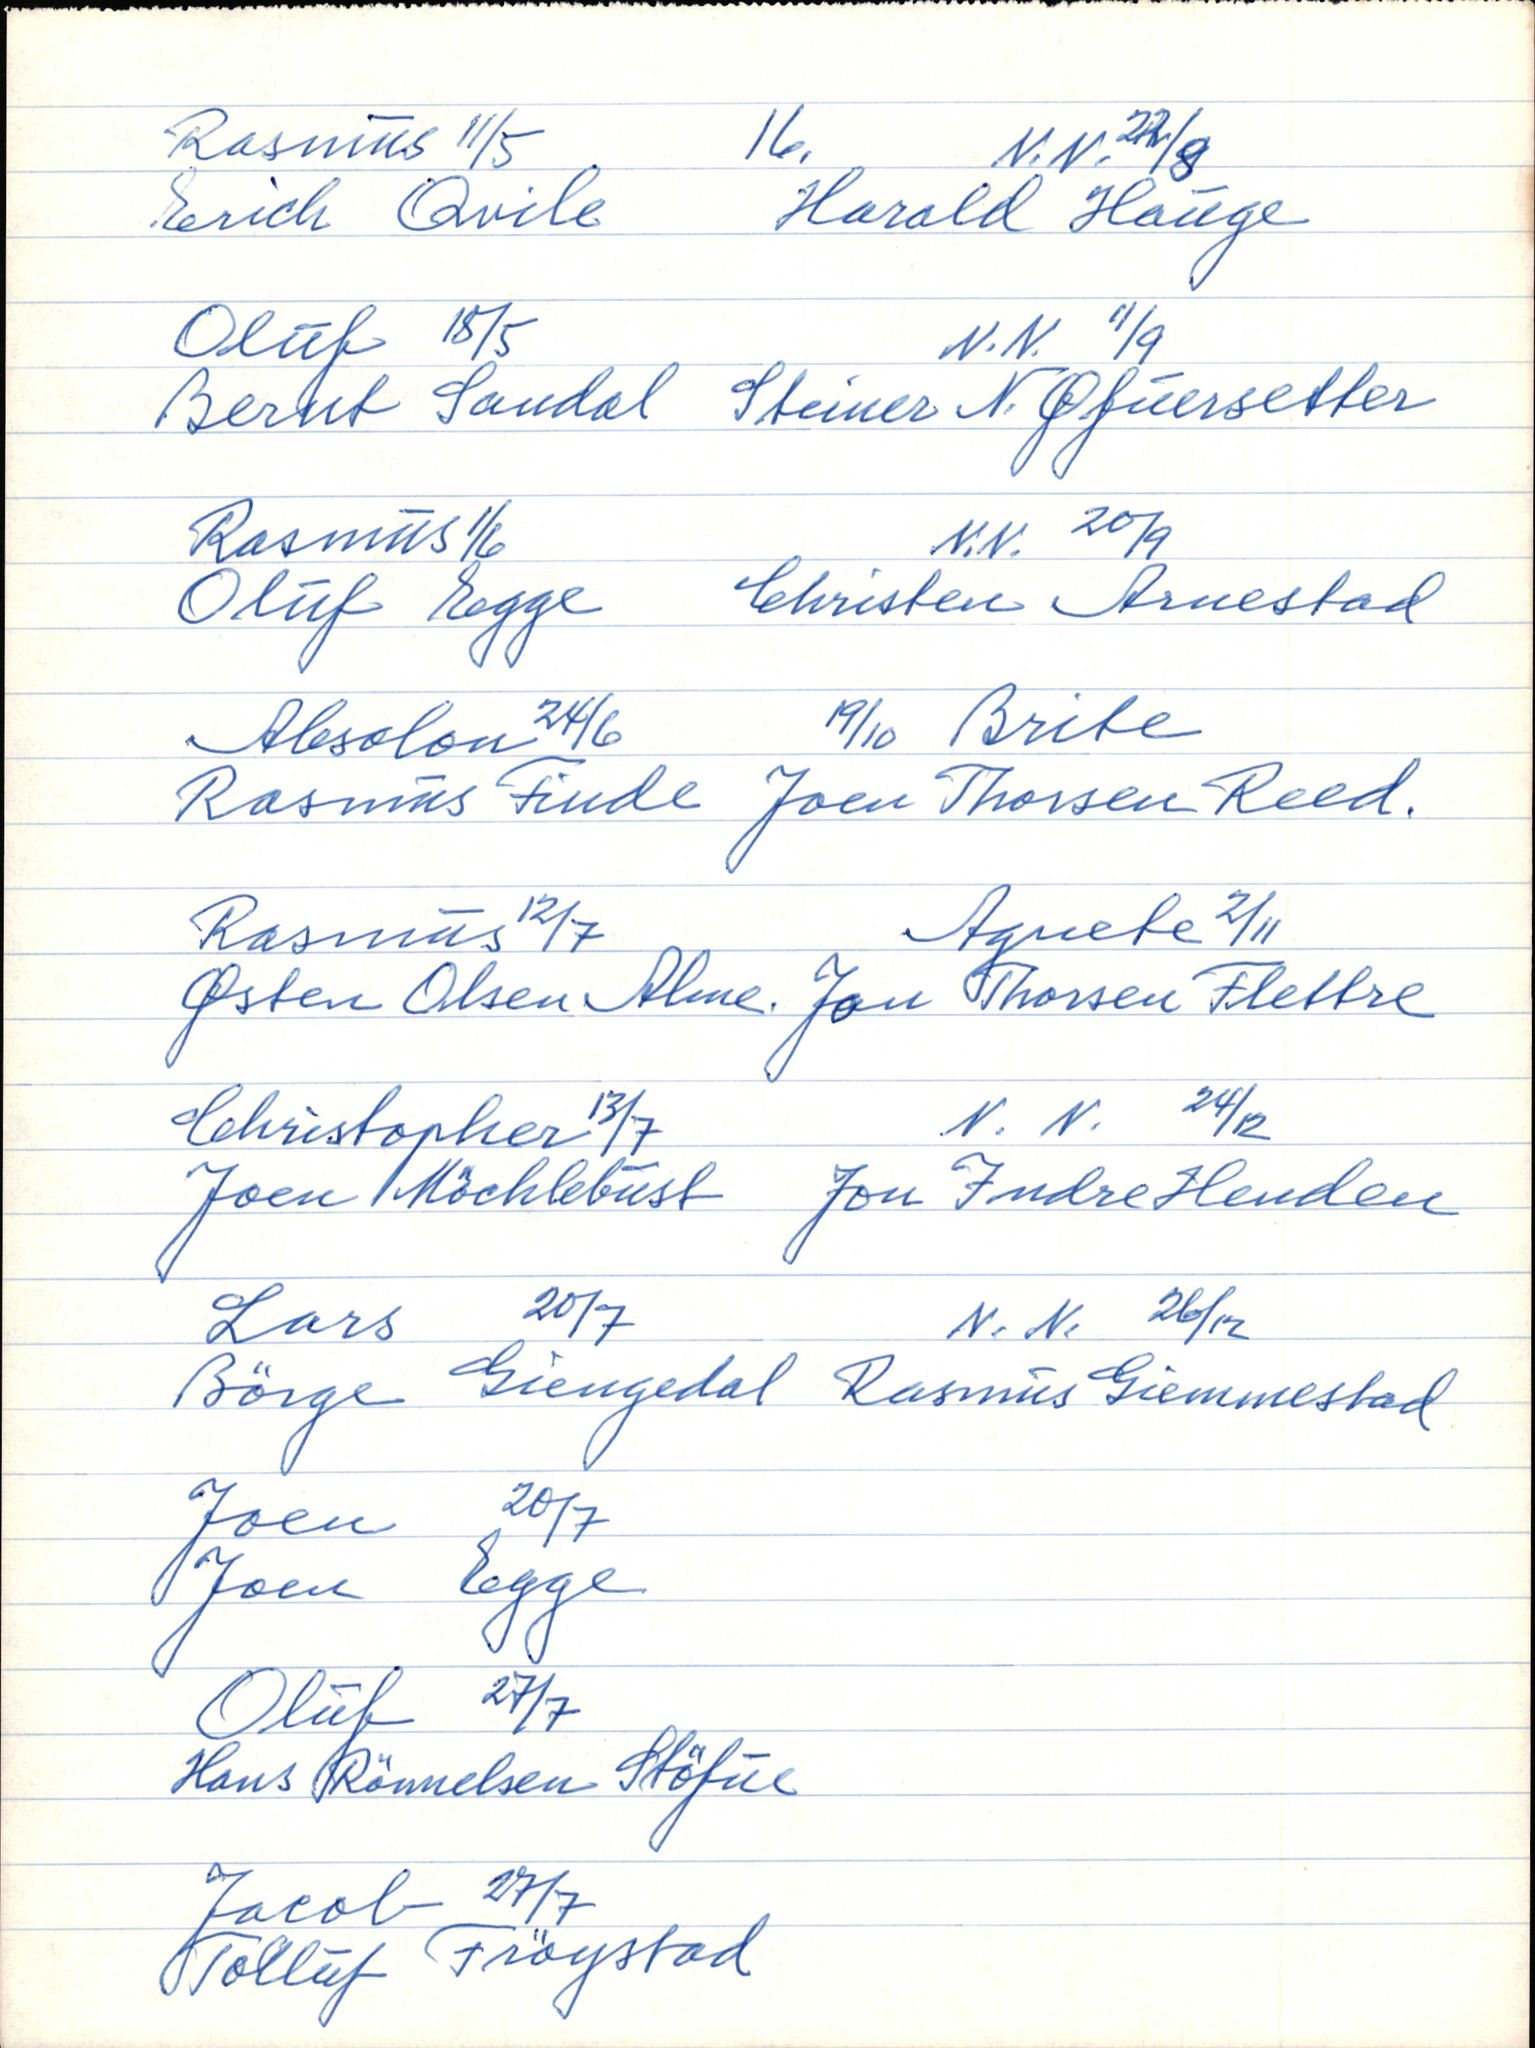 Rasmus 11/5 16. N.N. 22/8
Erich Qvile Harald Hauge
Oluf 18/5 N.N. 11/9
Bernt Sandal Steiner N. Øfuersetter
Rasmus 1/6 N.N. 20/9
Oluf Egge Christen Arnestad
Absolon 24/6 19/10 Brite
Rasmus Finde Joen Thorsen Reed.
Rasmus 12/7 Agnete 2/11
Østen Olsen Alme. Jon Thorsen Flettre
Christopher 13/7 N. N. 24/12
Joen Möchlebust Jon Indre Henden
Lars 20/7 N. N. 26/12
Börge Giengedal Rasmus Giemmestad
Joen 20/7
Joen Egge
Oluf 27/7
Hans Rönnelsen Stöfue
Jacob 27/7
Tolluf Fröystad